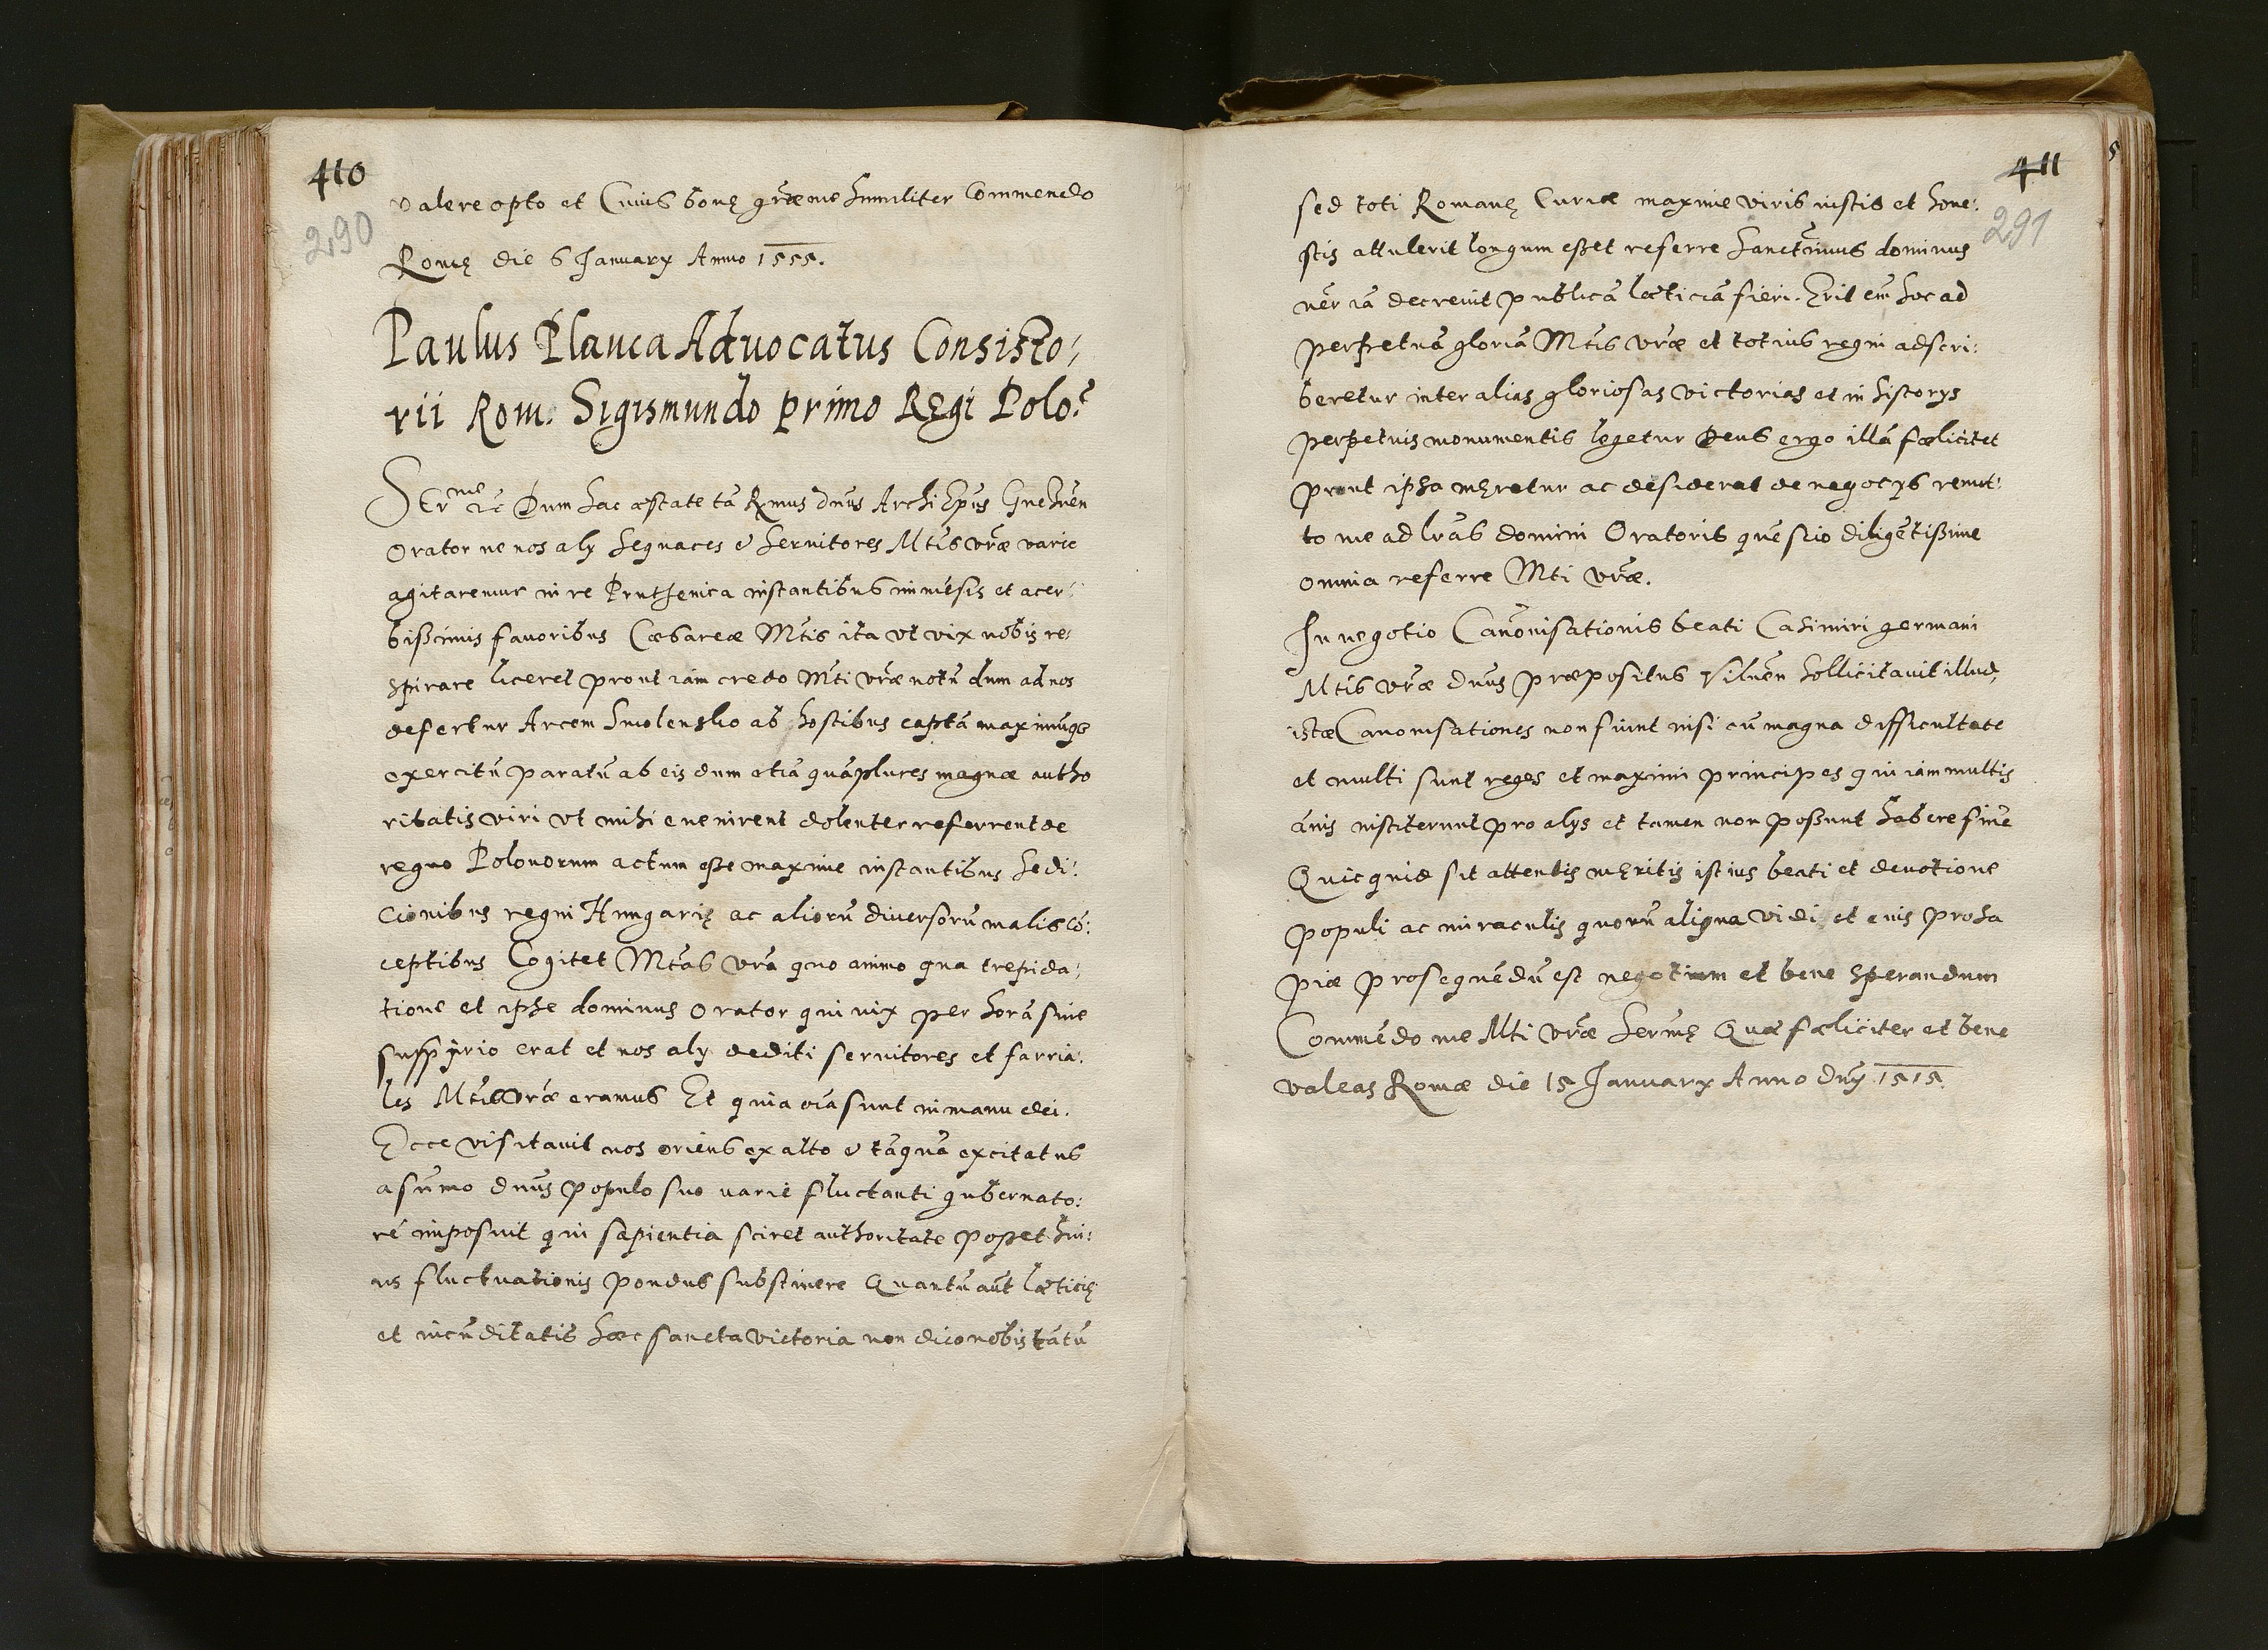 410
290
valere opto et Cuius bonę grãe me humiliter Commendo
Romę die 6 January Anno 1555.
Paulus Planca Advocatus Consisto:
rii Rom: Sigismundo primo Regi Polo:
SEr^me etc Dum hac æstate tã Rmus dñus ArchiEpũs Gnehnẽn
Orator ne nos aly sequaces & servitores Mtis vrã æ varie
agitaremur in re Pruthenica instantibus imẽsis et acer:
bißimis favoribus Cæsareæ Mtis ita vt vix nobis re:
spirare liceret prout iam credo Mti vrãe notũ dum ad nos
defertur Arcem Smolensko ab hostibus captã maximũqe
exercitũ paratũ ab eis dum etiã quãplures magnæ autho
ritatis viri vt mihi evenirent dolenter referrent de
regno Polonorum actum eße maxime instantibus sedi:
cionibus regni Hungarię ac aliorũ diversorũ malis cõ:
ceptibus Cogitet Mtas vrã quo animo qua trepida:
tione et ipse dominus Orator qui vix per horã sine
suspirio erat et nos aly dediti servitores et farria:
les Mtis vrãe eramus Et quia oĩa sunt in manu dei.
Ecce visitavit nos oriens ex alto & tãquã excitatus
a sũmo dñus populo suo varie fluctanti gubernato:
rẽ imposuit qui sapientia sciret authoritate poßet hui:
us fluctuationis pondus substinere Quantũ aũt læticię
et iucũditatis hæc sancta victoria non dico nobis tãtũ
411
291
sed toti Romanę Curiæ maxime viris iustis et hone:
stis attulerit longum eßet referre Sanctĩmus dominus
nẽr iã decrevit publicã læticiã fieri. Erit eñi hoc ad
perpetuã gloriã Mtis vrãe et totius regni adscri:
beretur inter alias gloriosas victorias et in historys
perpetuis monumentis legetur Deus ergo illã fælicitet
prout ipsa meretur ac desiderat de negocys remit:
to me ad lrãs domini Oratoris quẽ scio diligẽtißime
omnia referre Mti vrãe.
In negotio Canõnisationis beati Casimiri germani
Mtis vrãe dñus præpositus Vilnẽn sollicitavit illud,
istæ Canonisationes non fiunt nisi cũ magna difficultate
et multi sunt reges et maximi principes qui iam multis
ãnis institerunt pro alys et tamen non poßunt habere finẽ
Quicquid sit attentis meritis istius beati et devotione
populi ac miraculis quorũ aliqua vidi et eius prosa
piæ prosequẽdũ est negotium et bene sperandum
Commẽdo me Mti vrãe Sermę Quæ fæliciter et bene
valeas Romæ die 15 January Anno dñy 1515.